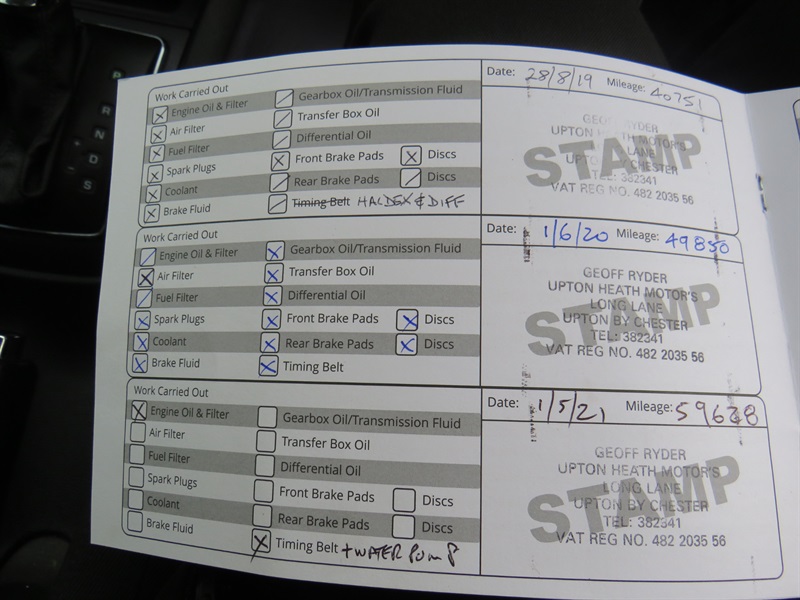 Work Carried Out
Engine Oil & Filter
Air Filter
Fuel Filter
Spark Plugs
Coolant
Brake Fluid
Gearbox Oil/Transmission Fluid
Transfer Box Oil
Differential Oil
Front Brake Pads Discs
Rear Brake Pads Discs
Timing Belt HALDEX & DIFF
Date: 28/8/19 Mileage: 40751
STAMP
GEOFF RYDER
UPTON HEATH MOTOR'S
LONG LANE
UPTON BY CHESTER
TEL: 382341
VAT REG NO. 482 2035 56
Work Carried Out
Engine Oil & Filter
Air Filter
Fuel Filter
Spark Plugs
Coolant
Brake Fluid
Gearbox Oil/Transmission Fluid
Transfer Box Oil
Differential Oil
Front Brake Pads Discs
Rear Brake Pads Discs
Timing Belt
Date: 1/6/20 Mileage: 49850
STAMP
GEOFF RYDER
UPTON HEATH MOTOR'S
LONG LANE
UPTON BY CHESTER
TEL: 382341
VAT REG NO. 482 2035 56
Work Carried Out
Engine Oil & Filter
Air Filter
Fuel Filter
Spark Plugs
Coolant
Brake Fluid
Gearbox Oil/Transmission Fluid
Transfer Box Oil
Differential Oil
Front Brake Pads Discs
Rear Brake Pads Discs
Timing Belt + WATER PUMP
Date: 1/5/21 Mileage: 59628
STAMP
GEOFF RYDER
UPTON HEATH MOTOR'S
LONG LANE
UPTON BY CHESTER
TEL: 382341
VAT REG NO. 482 2035 56
P
R
N
D
S